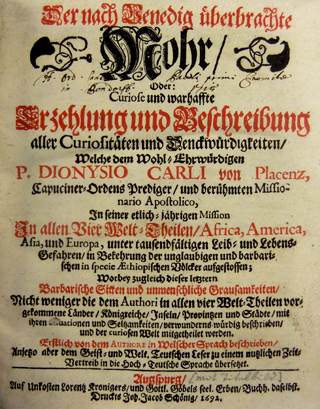 Der nach Venedig überbrachte
Mohr/
Oder:
Curiose und warhaffte
Erzehlung und Beschreibung
aller Curiositäten und Denckwürdigkeiten/
Welche dem Wohl-Ehrwürdigen
P. DIONYSIO CARLI von Placenz,
Capuciner-Ordens Prediger/ und berühmten Missio-
nario Apostolico,
In seiner etlich-jährigen Mission
In allen Vier Welt-Theilen/ Africa, America,
Asia, und Europa, unter tausendfältigen Leib- und Lebens-
Gefahren/ in Bekehrung der unglaubigen und barbari-
schen in specie Æthiopischen Völcker aufgestossen;
Worbey zugleich dieser letztern
Barbarische Sitten und unmenschliche Grausamkeiten/
Nicht weniger die dem Authori in allen vier Welt-Theilen vor-
gekommene Länder/ Königreiche/ Inseln/ Provintzen und Städte/ mit
ihren Situationen und Seltsamkeiten/ verwunderns-würdig beschrieben/
und der curiosen Welt mitgetheilet werden.
Erstlich von dem AUTHORE in Welscher Sprach beschrieben/
Anjetzo aber dem Geist- und Welt. Teutschen Leser zu einem nutzlichen Zeit-
Vertreib in die Hoch-Teutsche Sprache übersetzet.
Augspurg/
Auf Unkosten Lorentz Kronigers/ und Gottl. Göbels seel. Erben/ Buchh. daselbst.
Druckts Joh. Jacob Schönig/ 1692.